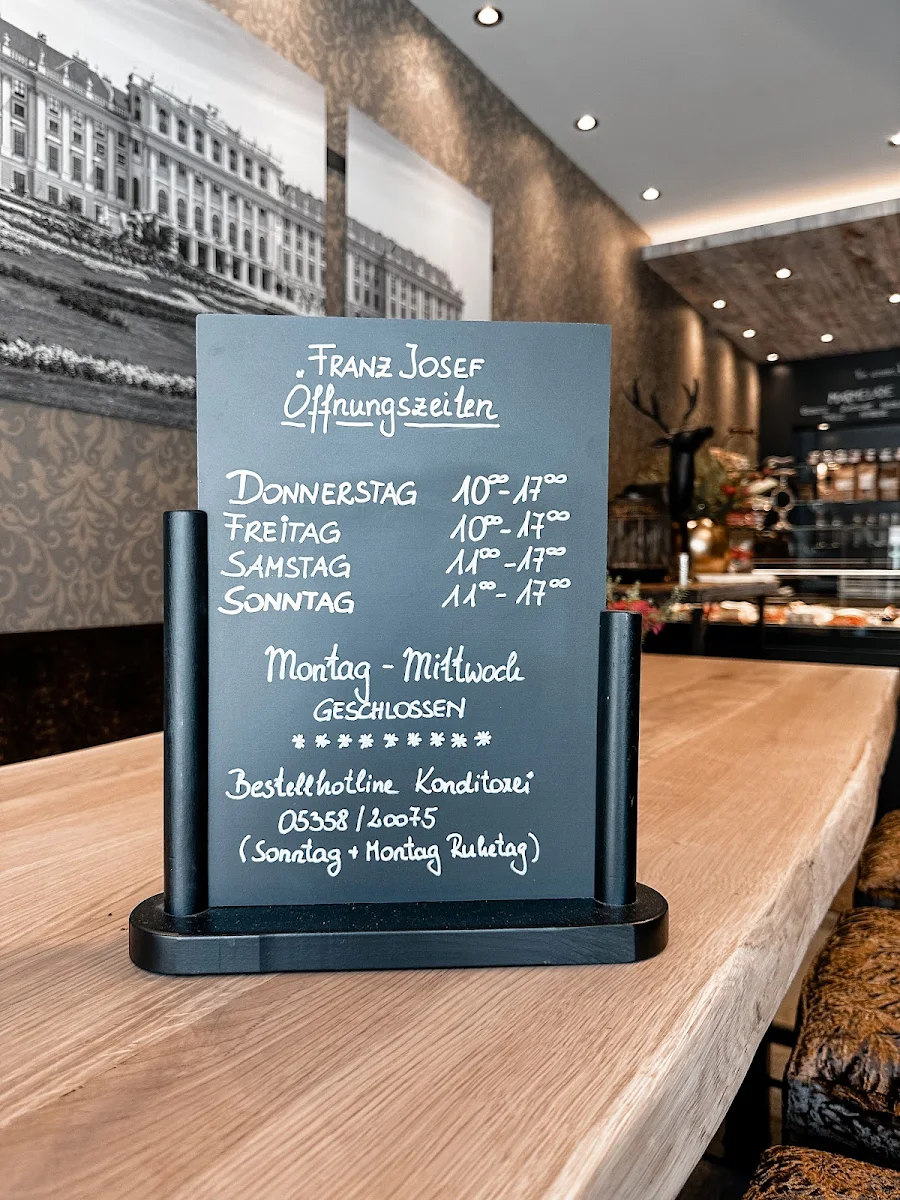 „Franz Josef
Öffnungszeiten
Donnerstag 10⁰⁰-17⁰⁰
Freitag 10⁰⁰-17⁰⁰
Samstag 11⁰⁰-17⁰⁰
Sonntag 11⁰⁰-17⁰⁰
Montag - Mittwoch
geschlossen
********
Bestellhotline Konditorei
05358/20075
(Sonntag + Montag Ruhetag)
Marmelade